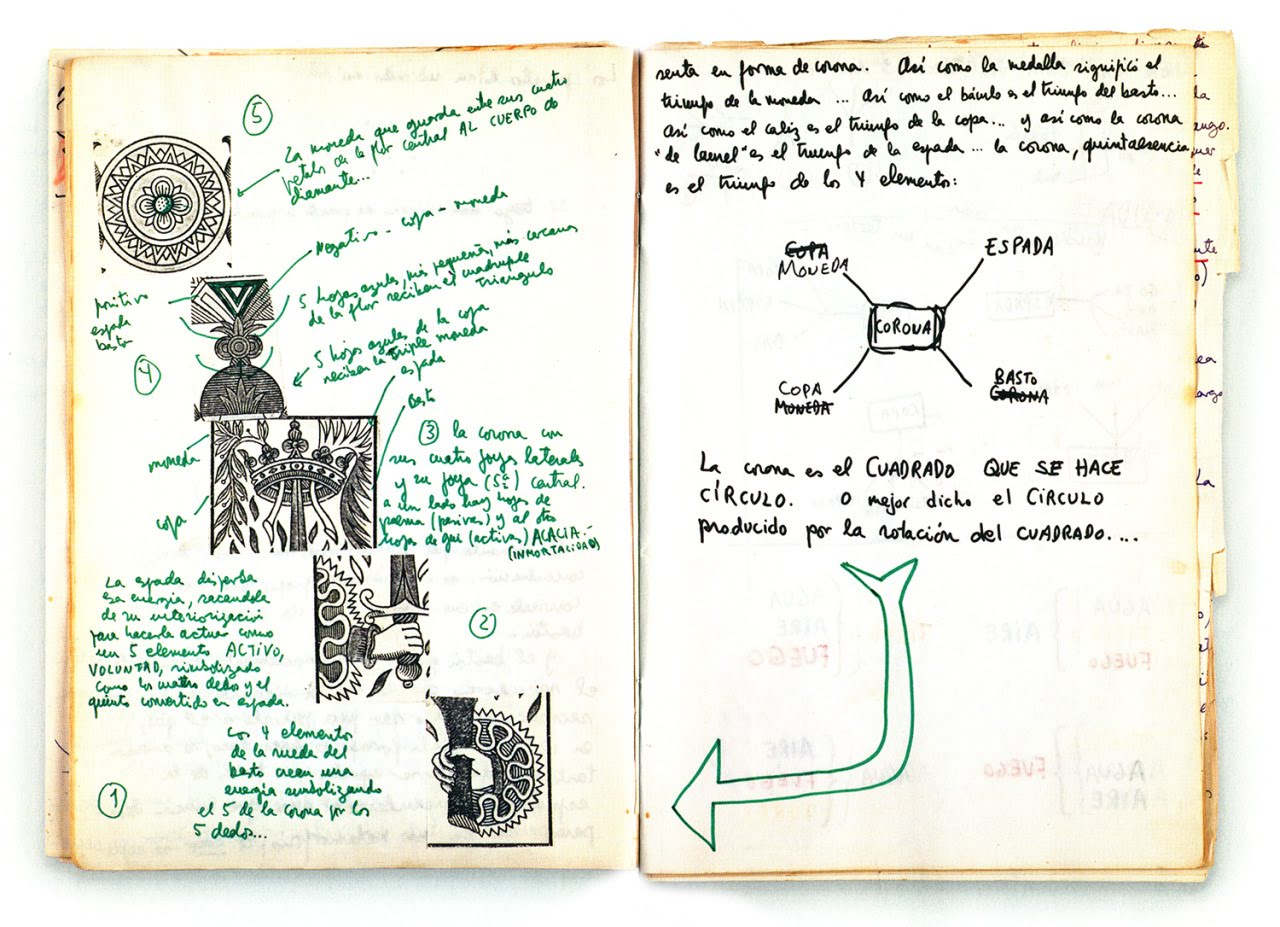 5
La moneda que guarda entre sus cuatro
petalos de la flor central AL CUERPO DE
diamante...
Negativo - copa - moneda
positivo
espada
basto
5 hojas azules, más pequeñas, más cercanas
de la flor reciben el cuadruple
triangulo
4
5 hojas azules de la copa
reciben la triple moneda
espada
Basto
moneda
copa
3 la corona con
sus cuatro joyas laterales
y su joya (5ª) central.
a un lado hay hojas de
palma (pasivas) y al otro
hojas de (activas) ACACIA.-
(INMORTALIDAD)
La espada dispersa
esa energia, sacandola
de su interiorización
para hacerla actuar como
un 5 elemento ACTIVO,
VOLUNTAD, simbolizado
como los cuatro dedos y el
quinto convertido en espada.
2
Los 4 elementos
de la rueda del
basto crean una
energia simbolizando
el 5 de la corona por los
5 dedos...
1
senta en forma de corona. Así como la medalla significó el
triunfo de la moneda ... Así como el báculo es el triunfo del basto...
Así como el caliz es el triunfo de la copa... y así como la corona
"de laurel" es el triunfo de la espada ... la corona, quintaesencia,
es el triunfo de los 4 elementos:
COPA
MONEDA
ESPADA
CORONA
COPA
MONEDA
BASTO
CORONA
La corona es el CUADRADO QUE SE HACE
CÍRCULO. O mejor dicho el CÍRCULO
producido por la rotación del CUADRADO....